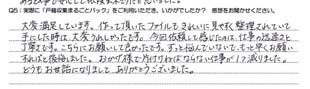 Q5:実際に「戸籍収集まるごとパック」をご利用いただき、いかがでしたか? 感想をお聞かせください。
大変満足しています。作って頂いたファイルもきれいに見やすく整理されていて
手にした時は大変うれしかったです。今回依頼して感じたのは、仕事の迅速さと
丁寧さです。こちらにお願いして良かったです。ずっと悩んでいないで、もっと早くお願い
すればと後悔しました。おかげ様で片付けねばならない仕事が1つ減りました。
どうもお世話になりまして、ありがとうございました。